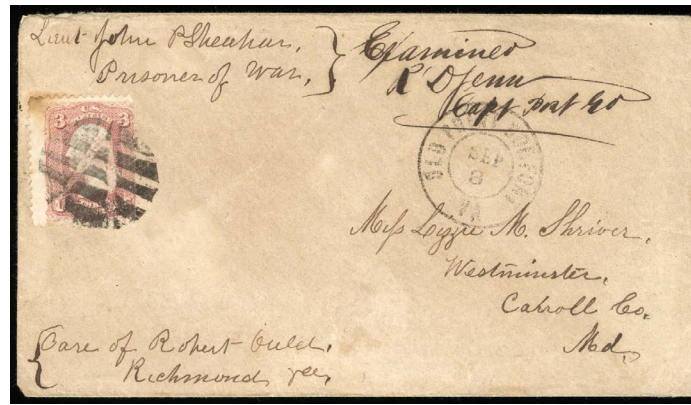 Lieut John P Sheahan,
Prisoner of War,
Examined
Capt
3 3
OLD POINT COMFORT
SEP
8
VA
Miss Lizzie M. Shriver,
Westminster,
Carroll Co.
Md.
Care of Robert Ould,
Richmond